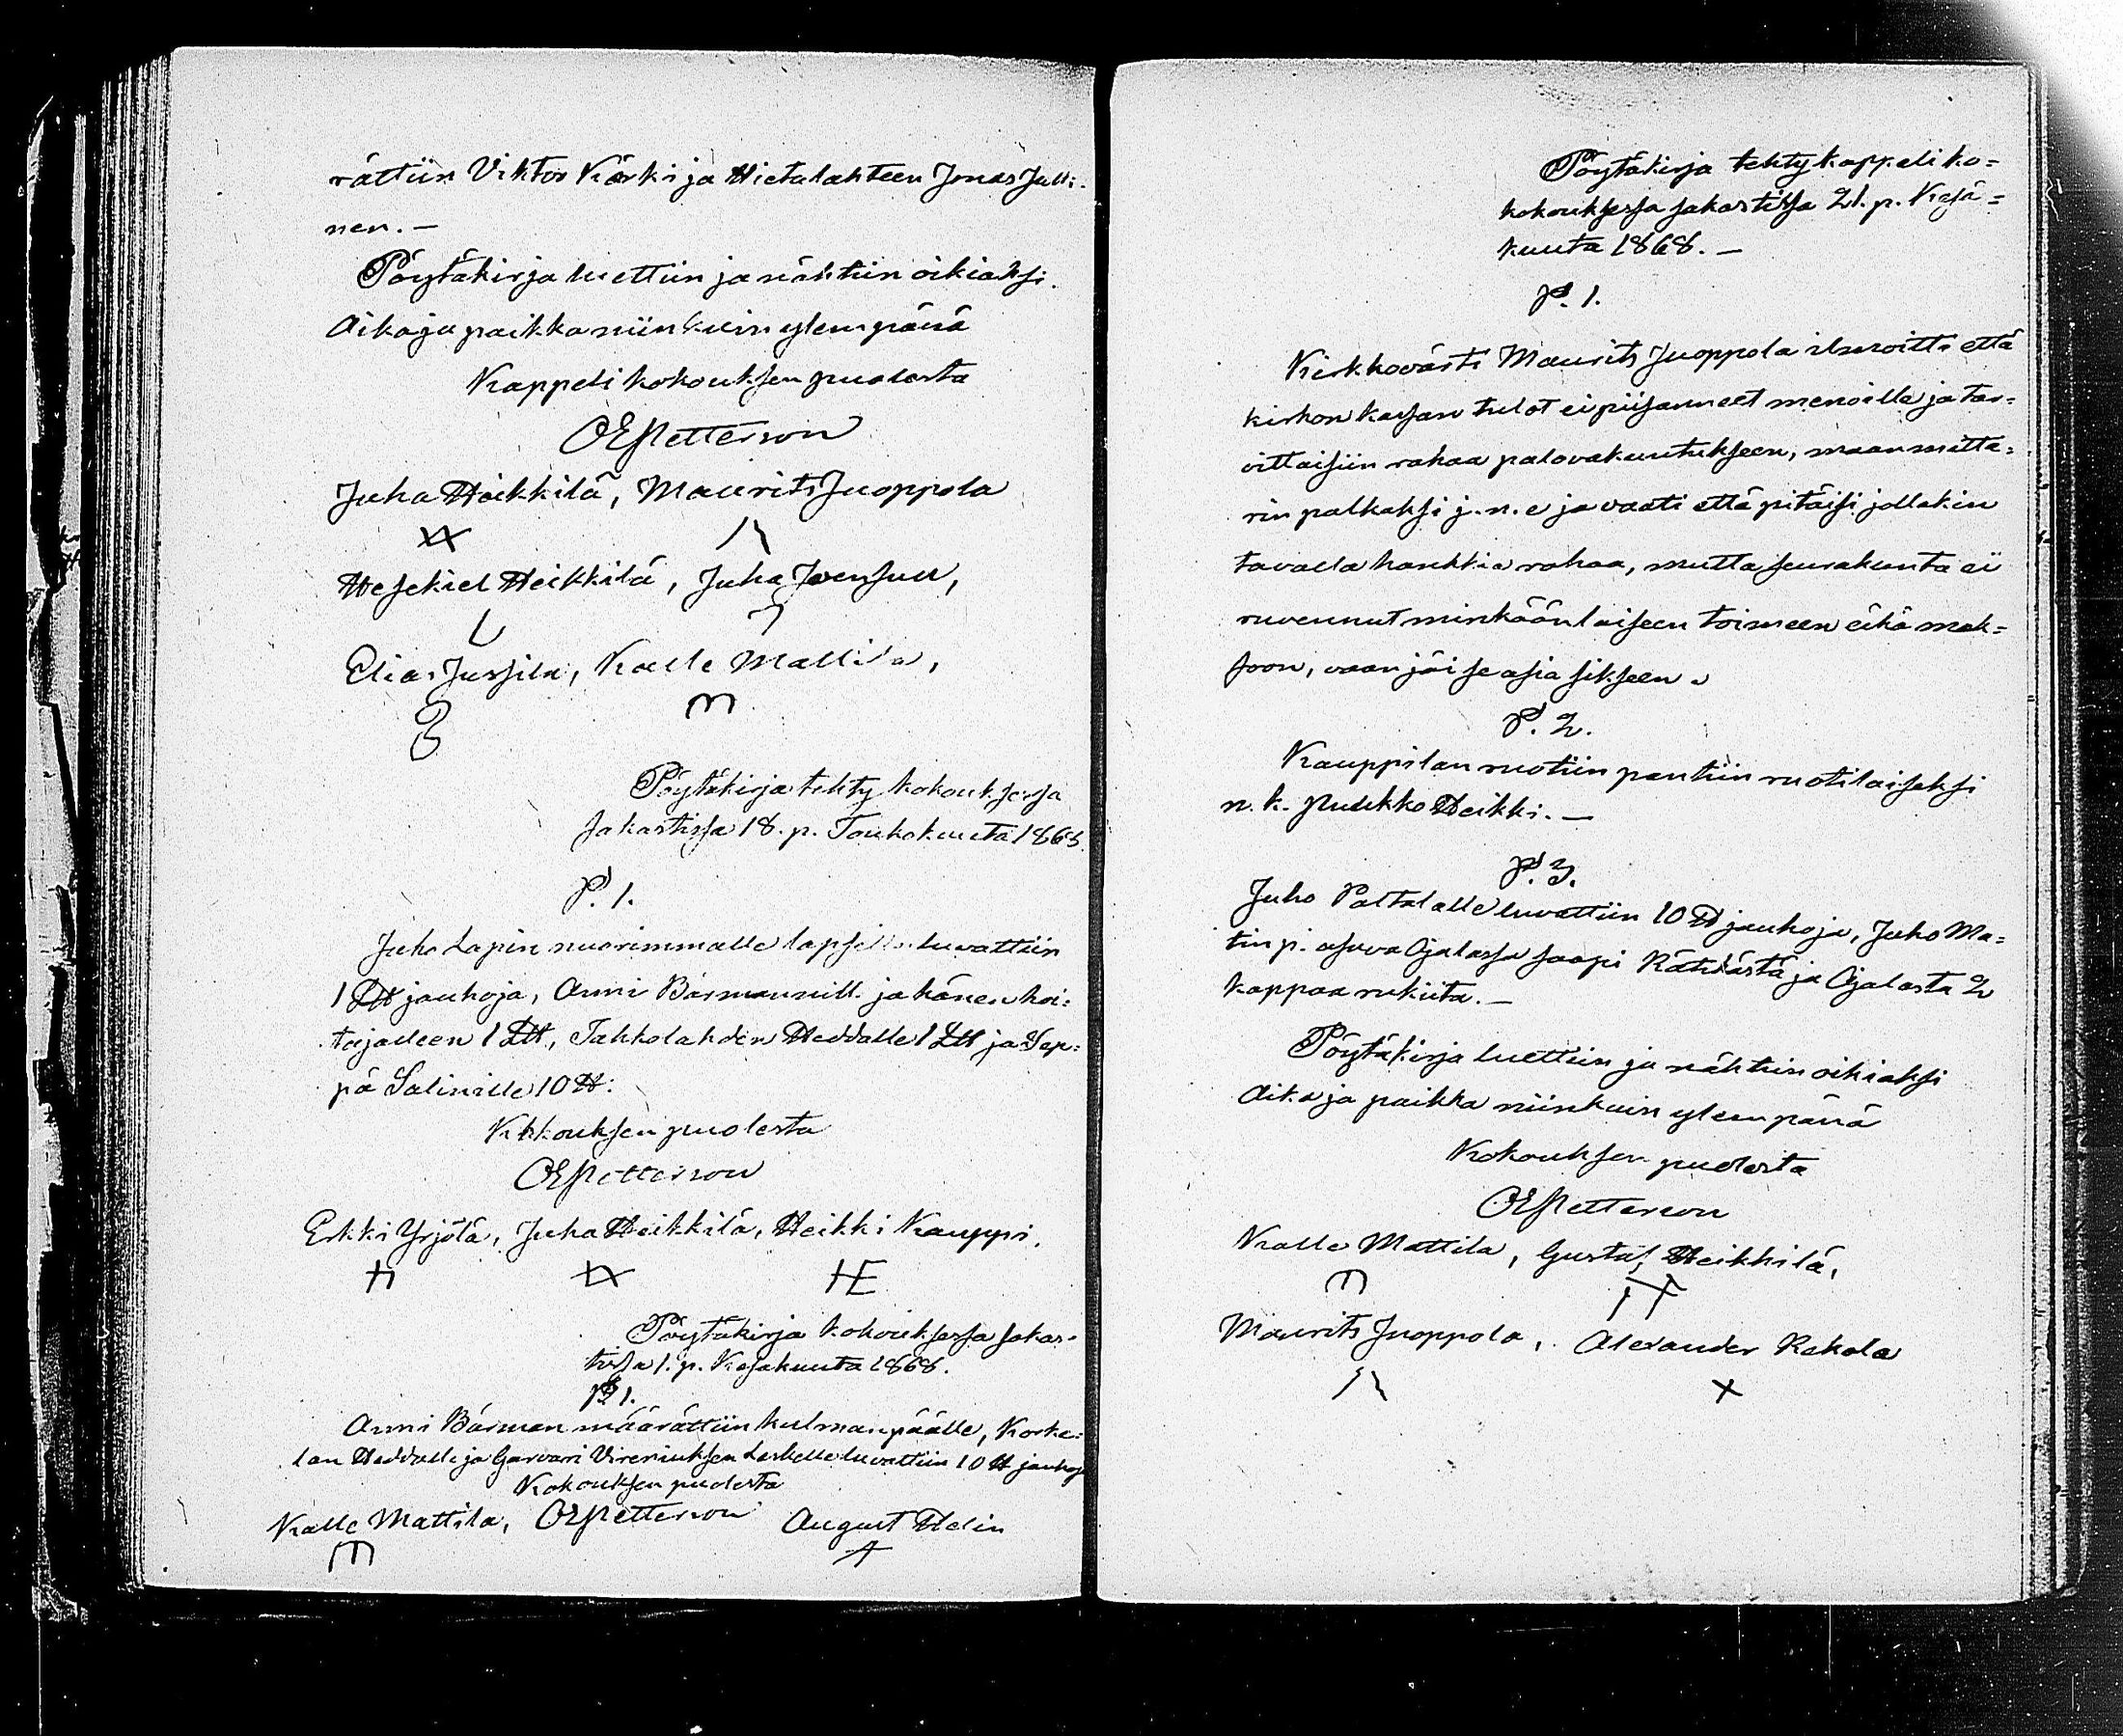 rättiin Viktor Kärki ja Hietalahteen Jonas Julli-
nen. —
Pöytäkirja luettiin ja nähtiin oikiaksi.
Aika ja paikka niinkuin ylempänä
Kappeli kokouksen puolesta
OEPetterson
Juha Heikkilä, Maurits Juoppola
Hesekiel Heikkilä, Juha Joensuu,
Elias Jussila, Kalle Mattila,
Pöytäkirja tehty kokouksessa
Sakastissa 18. p. Toukokuuta 1868.
P. 1.
Juho Lapin nuorimmalle lapselle luvattiin
1 L℔ jauhoja, Anni Bärmannill. ja hänen hoi=
tajalleen 1 L℔, Tahkolahden Heddalle 1 L℔ ja Sep=
pä Salinille 10 ℔:
Kokouksen puolesta
OEPetterson
Erkki Yrjölä, Juha Heikkilä, Heikki Kauppi.
Pöytäkirja kokouksessa Sakas-
tissa 1. p. Kesäkuuta 1868.
P 1.
Anni Bärman määrättiin kulmanpäälle, Korke=
lan Heddalle ja Garvari Vireniuksen Leskelle luvattiin 10 ℔ jauhoja
Kokouksen puolesta
Kalle Mattila, OEPetterson August Helin
Pöytäkirja tehty kappeli ko=
kokouksessa Sakastissa 21. p. Kesä=
kuuta 1868. —
P. 1.
Kirkkovärti Maurits Juoppola ilmoitti että
kirkon kassan tulot ei piisanneet menoille ja tar=
vittaisiin rahaa palovakuutukseen, maanmitta=
rin palkaksi j. n. e ja vaati että pitäisi jollakin
tavalla hankkia rahaa, mutta seurakunta ei
ruvennut minkäänlaiseen toimeen eikä mak=
soon, vaan jäi se asia sikseen.
P. 2.
Kauppilan ruotiin pantiin ruotilaiseksi
n. k. Puukko Heikki. —
P. 3.
Juho Paltalalle luvattiin 10 ℔ jauhoja, Juho Ma=
tin p. asuva Ojalassa saapi Rätkästä ja Ojalasta 2
kappaa rukiita. —
Pöytäkirja luettiin ja nähtiin oikiaksi
Aika ja paikka niinkuin ylempänä
Kokouksen puolesta
OEPetterson
Kalle Mattila, Gustaf Heikkilä,
Maurits Juoppola, Alexander Kekola